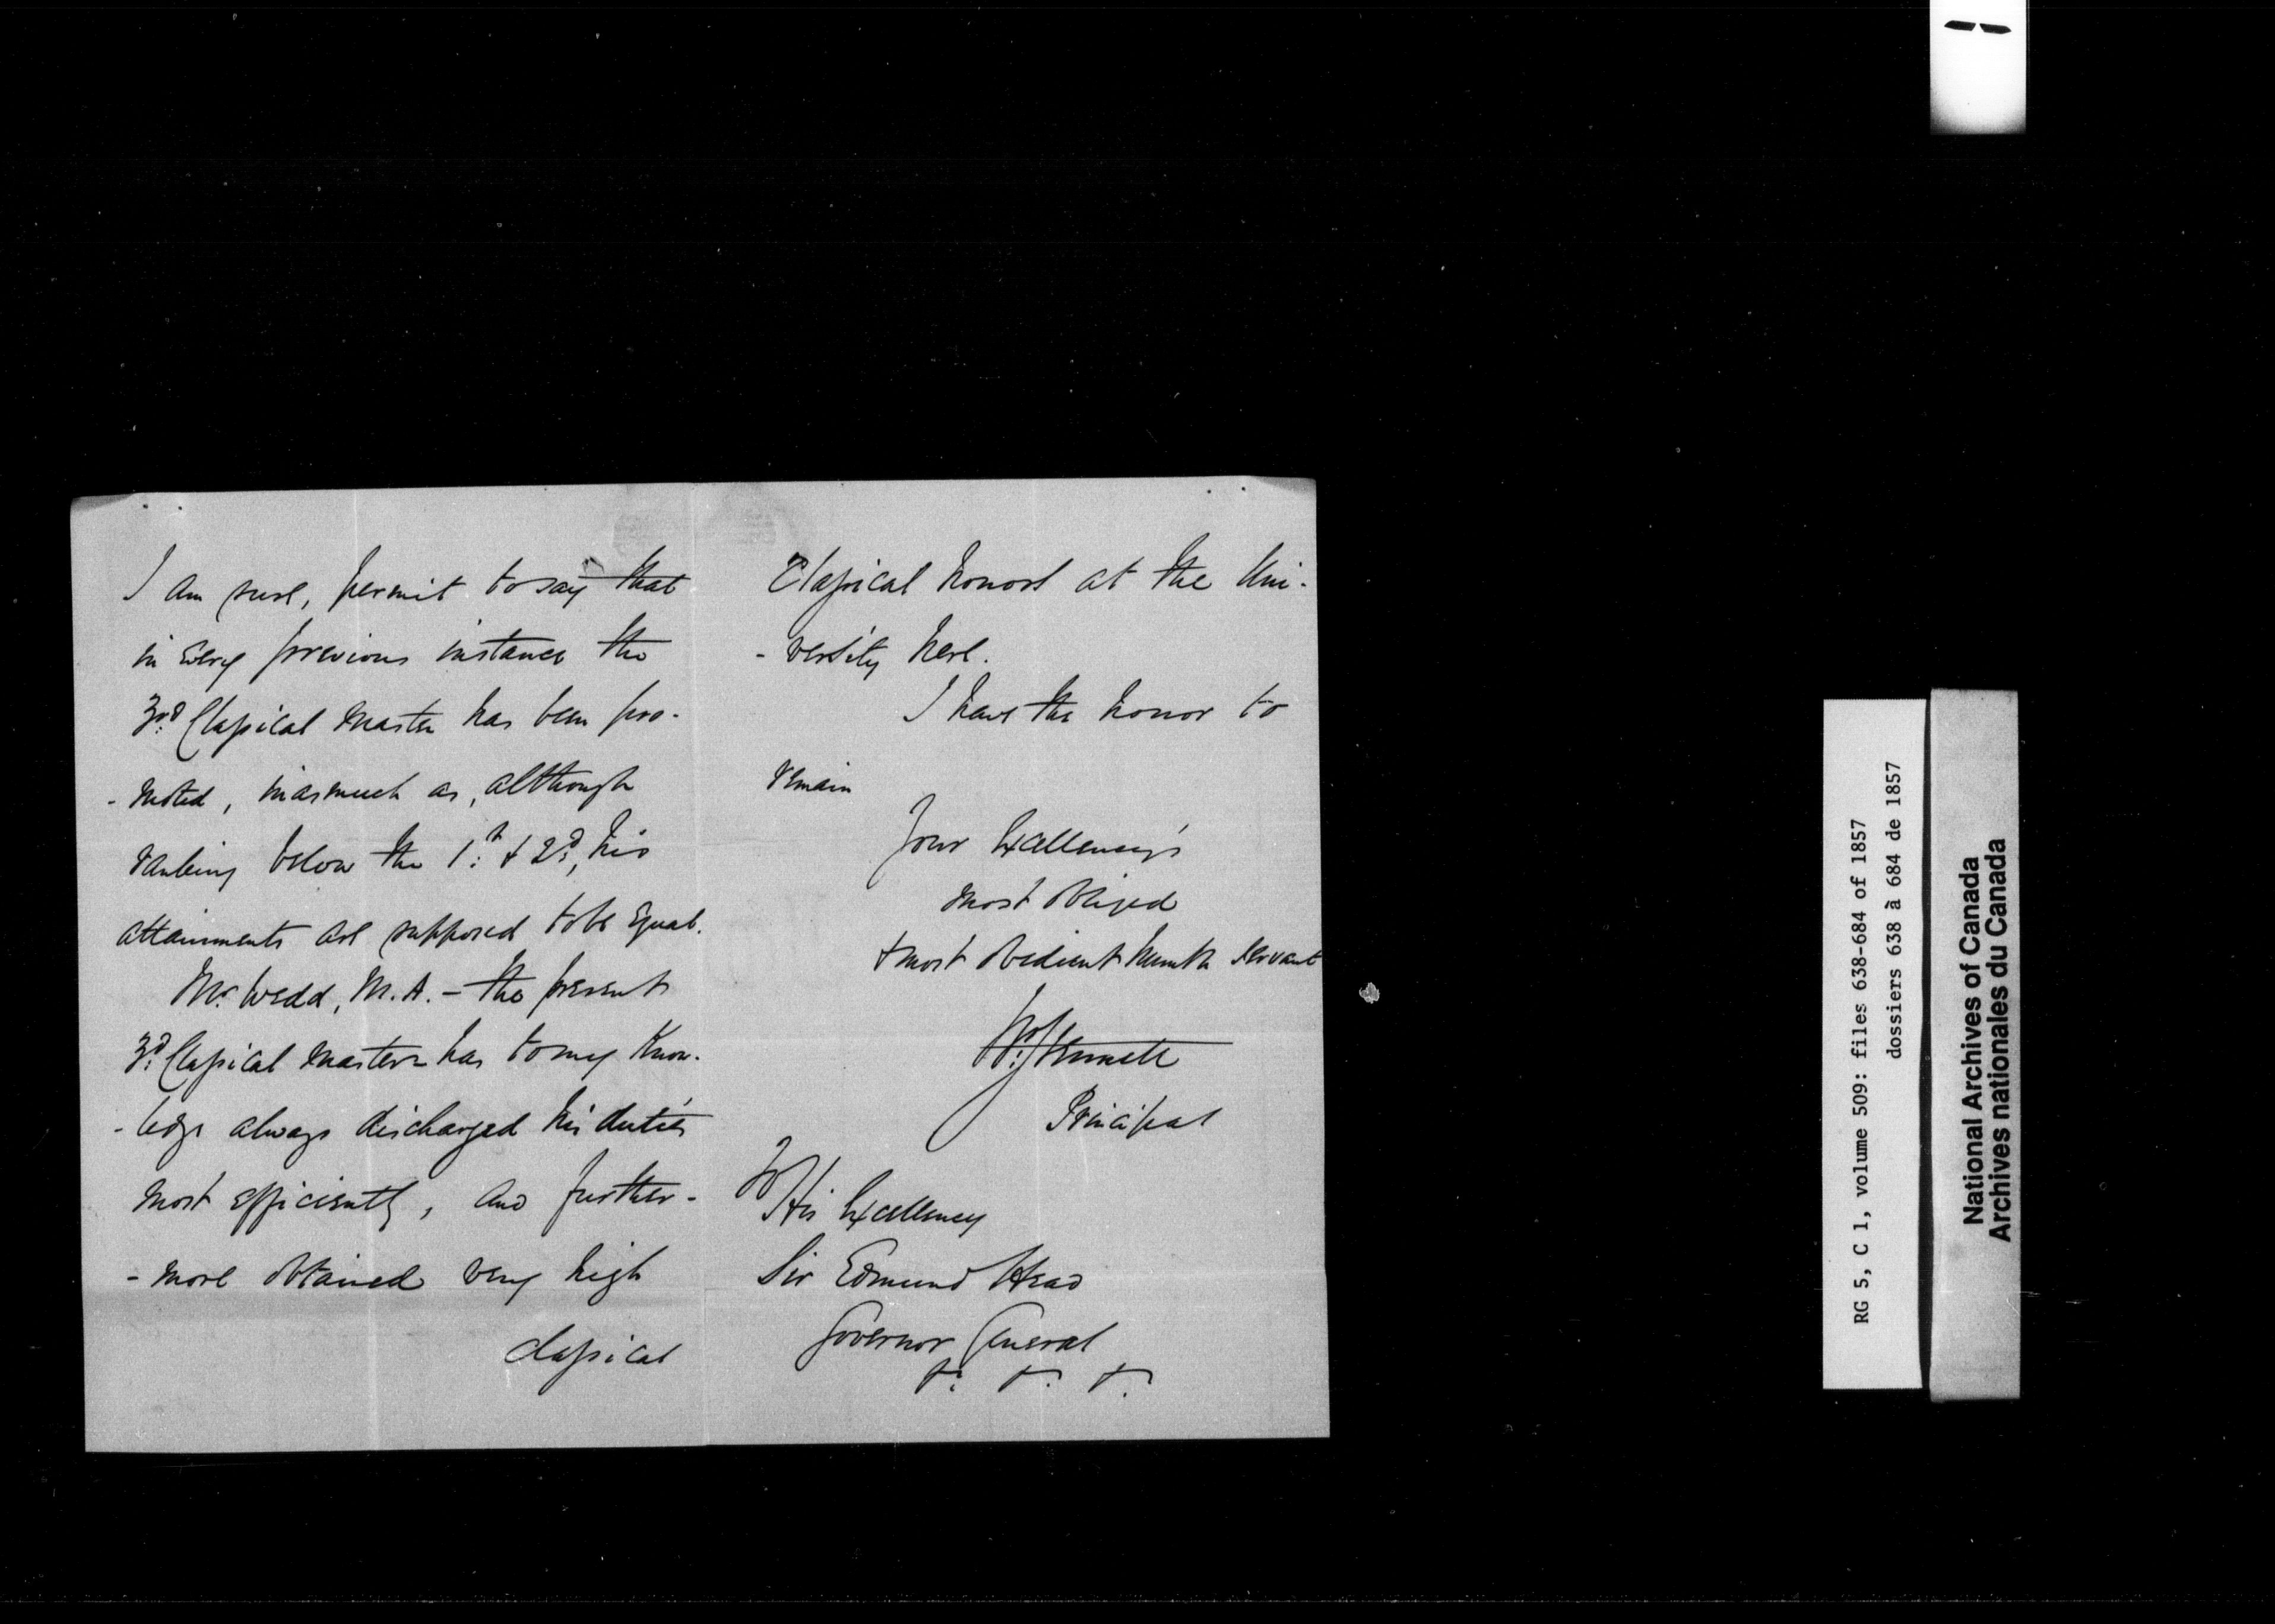 I am sure, permit to say that
in every previous instance the
3rd. Classical Master has been pro-
-moted, inasmuch as, although
ranking below the 1st. & 2d., his
attainments are supposed to be equal.
Mr. Wedd, M.A. - the present
3d. Classical Master - has to my know-
-ledge always discharged his duties
most efficiently, and further-
-more obtained very high
classical
Classical honors at the Uni-
-versity here.
I have the honor to
remain
Your Excellency's
most obliged
& most obedient humble servant
Principal
To
His Excellency
Sir Edmund Head
Governor General
&. &. &.
RG 5, C 1, volume 509: files 638-684 of 1857
dossiers 638 à 684 de 1857
National Archives of Canada
Archives nationales du Canada